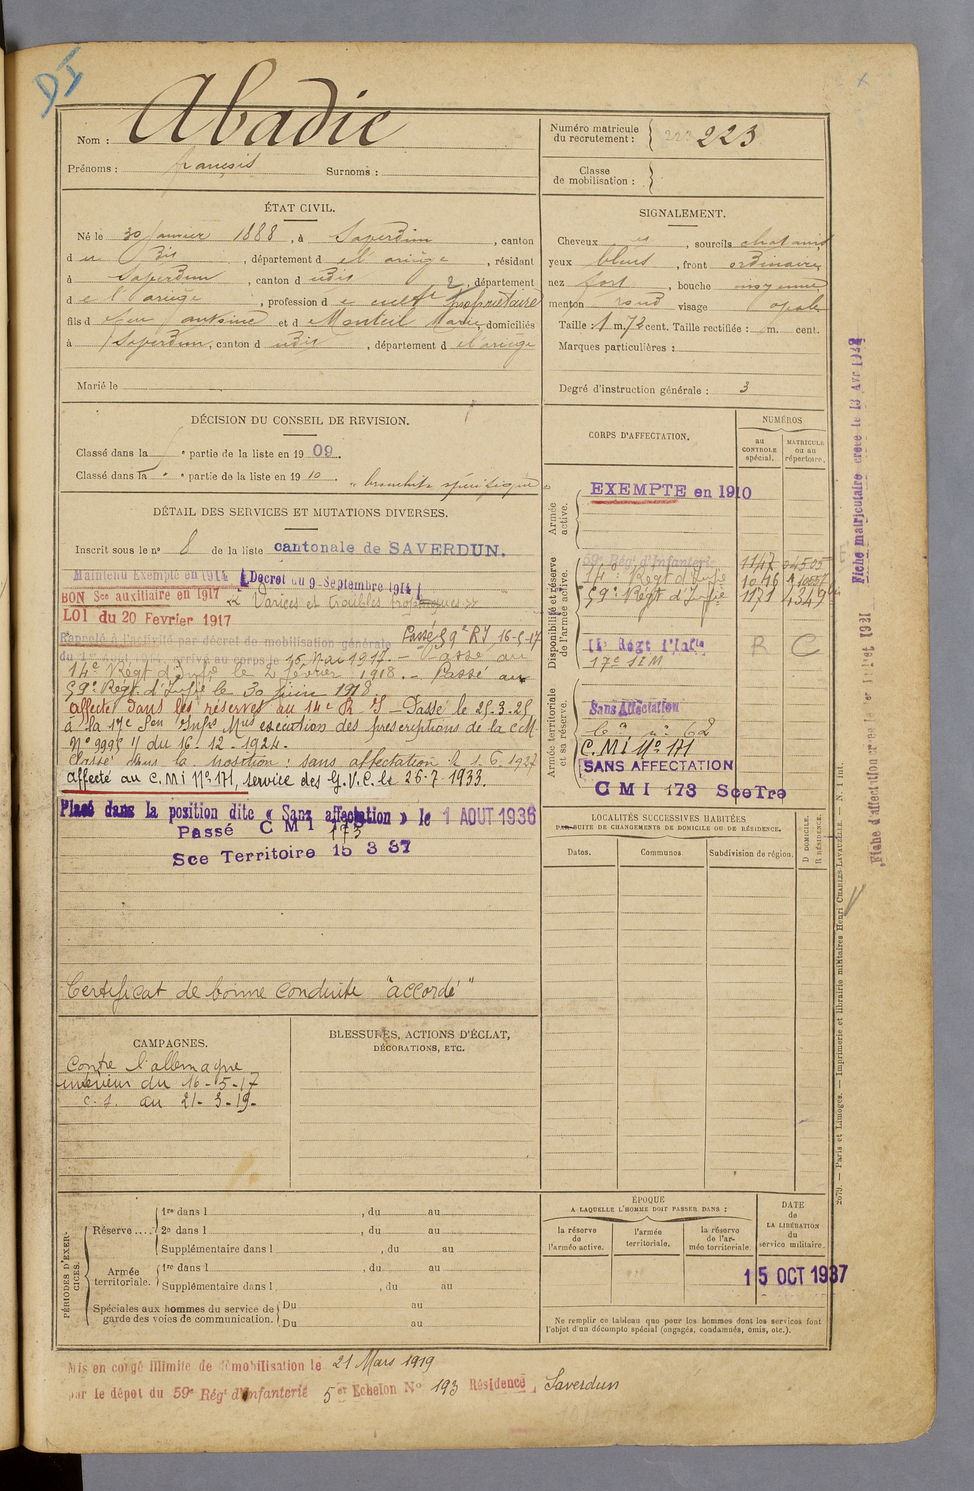 DI
Nom : Abadie
Prénoms : françois Surnoms :
Numéro matricule du recrutement : 223 223
Classe de mobilisation :
ÉTAT CIVIL.
Né le 30 Janvier 1888, à Saverdun, canton
d u dit, département d e l'ariège, résidant
à Saverdun, canton d udit, département
d e l'ariège, profession d e cult 2 propriétaire
fils d e feu antoine et d e Monteil Marie, domiciliés
à Saverdun, canton d udit, département d e l'ariège
Marié le
SIGNALEMENT.
Cheveux et, sourcils chatains
yeux bleus, front ordinaire
nez fort, bouche moyenne
menton rond visage ovale
Taille : 1 m. 72 cent. Taille rectifiée : m. cent.
Marques particulières :
Degré d'instruction générale : 3
DÉCISION DU CONSEIL DE RÉVISION.
Classé dans la e partie de la liste en 19 09.
Classé dans la e partie de la liste en 19 10. " bronchite spécifique "
DÉTAIL DES SERVICES ET MUTATIONS DIVERSES.
Inscrit sous le no 8 de la liste cantonale de SAVERDUN.
Maintenu Exempté en 1914 (Décret du 9 Septembre 1914)
BON Sce auxiliaire en 1917 « Varices et troubles trophiques »
LOI du 20 Fevrier 1917
Passé 59e RI 16-5-17
Rappelé à l'activité par décret de mobilisation générale
du 1er Août 1914, arrivé au corps le 15 Mai 1917. - Passé au
14e Régt d'Infie le 2 février 1918. - Passé au
59e Régt d'Infie le 30 juin 1918
affecté dans les réserves au 14e R I - Passé le 25.3.25
à la 17e Son Infrs Mres exécution des prescriptions de la C.M.
No 9995 1/ du 16-12-1924.
Classé dans la position : sans affectation le 1-6-1927
affecté au C.M.I No 171, service des G.V.C. le 26-7-1933.
Placé dans la position dite « Sans affectation » le 1 AOUT 1936
Passé C M I 173
Sce Territoire 15 3 37
Certificat de bonne conduite "accordé"
CORPS D'AFFECTATION.
NUMÉROS
au CONTROLE spécial.
MATRICULE ou au répertoire.
Armée active.
EXEMPTE en 1910
Disponibilité et réserve de l'armée active.
59e Rég. d'Infanterie 1147
14e Régt d'Infie 1016
59e Régt d'Infie 1171 4349
14e Régt d'Infie R C
17e SIM
Armée territoriale et sa réserve.
Sans Affectation
C.M.I No 171
SANS AFFECTATION
C M I 173 Sce Tre
LOCALITÉS SUCCESSIVES HABITÉES
PAR SUITE DE CHANGEMENTS DE DOMICILE OU DE RÉSIDENCE.
Dates. Communes. Subdivision de région. D DOMICILE. R RÉSIDENCE.
CAMPAGNES.
Contre l'allemagne
intérieur du 16-5-17
c.s. au 21-3-19-
BLESSURES, ACTIONS D'ÉCLAT,
DÉCORATIONS, ETC.
PÉRIODES D'EXERCICES.
Réserve .... 1re dans l , du au
2e dans l , du au
Supplémentaire dans l , du au
Armée territoriale. 1re dans l , du au
Supplémentaire dans l , du au
Spéciales aux hommes du service de garde des voies de communication. Du au
Du au
ÉPOQUE
A LAQUELLE L'HOMME DOIT PASSER DANS :
la réserve de l'armée active.
l'armée territoriale.
la réserve de l'armée territoriale.
DATE de LA LIBÉRATION du service militaire.
15 OCT 1937
Ne remplir ce tableau que pour les hommes dont les services font
l'objet d'un décompte spécial (engagés, condamnés, omis, etc.).
Mis en congé illimité de démobilisation le 21 Mars 1919
par le dépôt du 59e Régt d'Infanterie 5er Echelon No 193 Résidence, Saverdun
2679. — Paris et Limoges. — Imprimerie et librairie militaires Henri CHARLES-LAVAUZELLE. — N. 1 int.